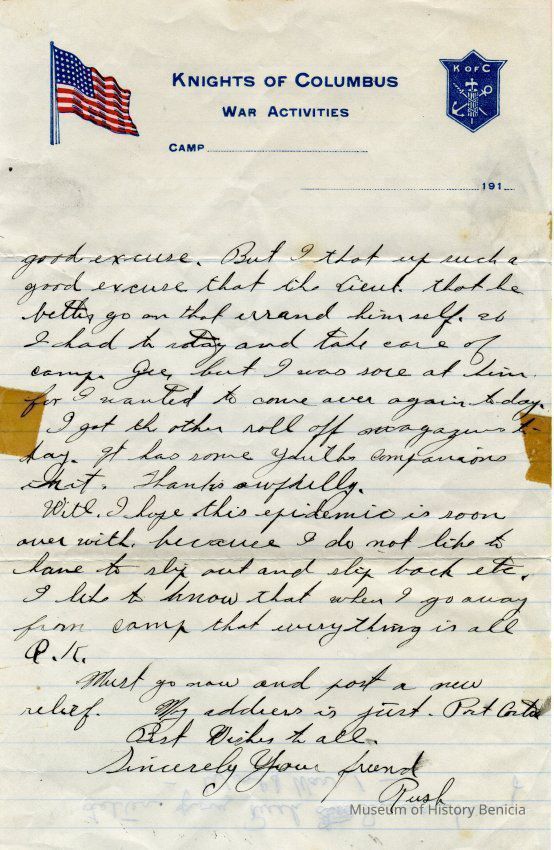 K OF C
KNIGHTS OF COLUMBUS
WAR ACTIVITIES
CAMP
191
good excuse. But I that up such a
good excuse that the Lieut. that he
better go on that errand himself. as
I had to stay and take care of
camp. Gee, but I was sore at him.
for I wanted to come over again today.
I got the other roll off magazines to-
day. It has some Youths companions
in it. Thanks awfully.
Well, I hope this epidemic is soon
over with, because I do not like to
have to slip out and slip back etc.
I like to know that when I go away
from camp that everything is all
O.K.
Must go now and post a new
relief. My address is just. Port Costa
Best Wishes to all.
Sincerely Your friend
Rush
Museum of History Benicia